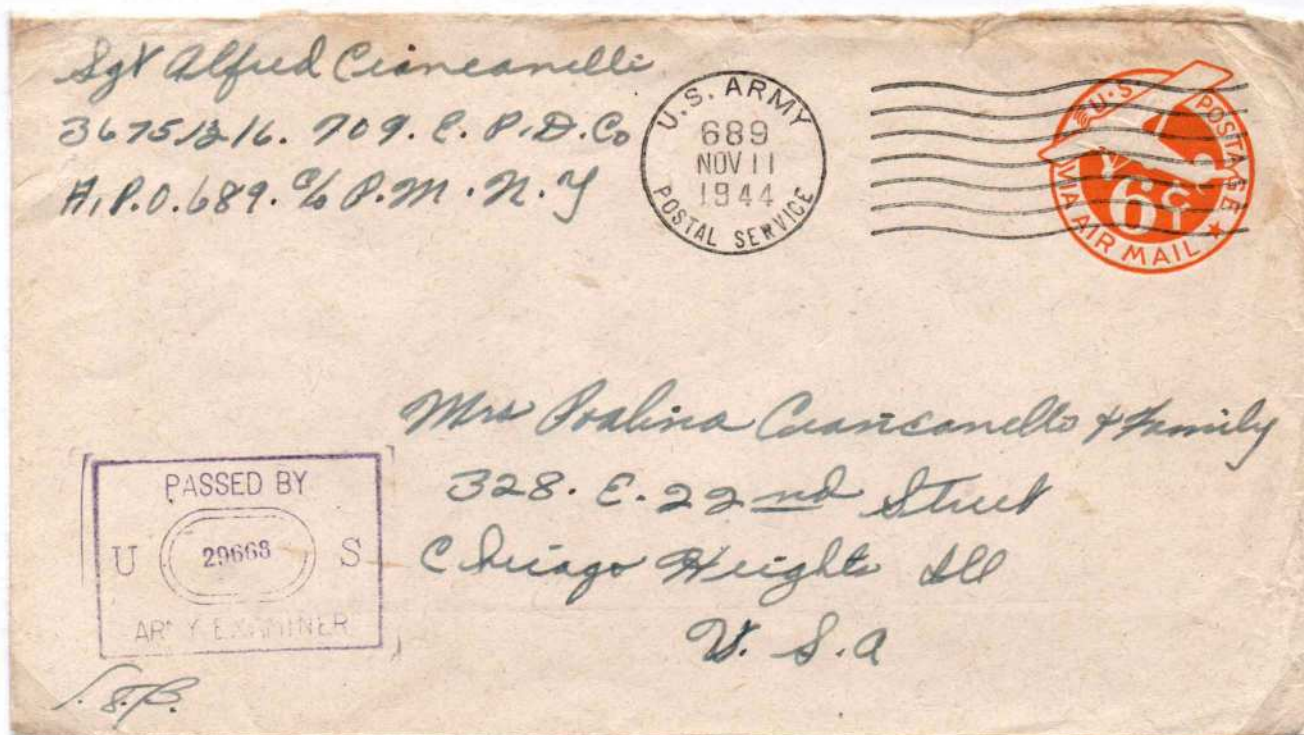 Sgt Alfred Ciancanelli
36751216. 709. E. P. D. Co
A.P.O. 689. c/o P.M. N.Y
U.S. ARMY
689
NOV 11
1944
POSTAL SERVICE
U.S. POSTAGE
6¢
VIA AIR MAIL
Mrs Ciancanelli & Family
328. E. 22nd Street
Chicago Heights Ill
U. S. A
PASSED BY
U 29668 S
ARMY EXAMINER